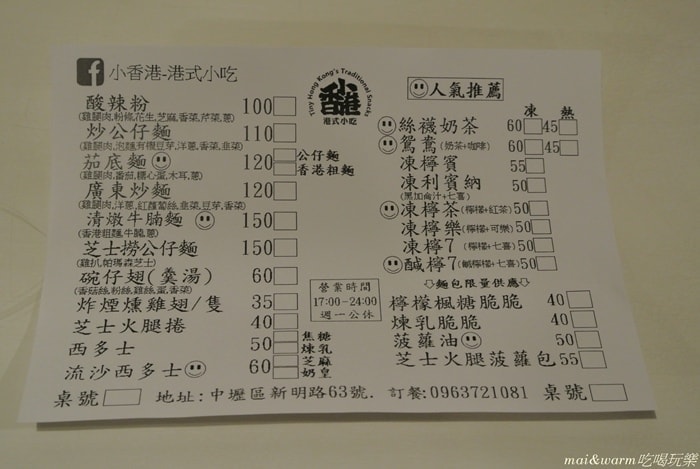 小香港-港式小吃
Tiny Hong Kong's Traditional Snacks
小香港
港式小吃
人氣推薦
酸辣粉 100
(雞腿肉,粉條,花生,芝麻,香菜,芹菜,蔥)
炒公仔麵 110
(雞腿肉,泡麵,有機豆芽,洋蔥,香菜,韭菜)
茄底麵 120 公仔麵 香港粗麵
(雞腿肉,番茄,糖心蛋,木耳,蔥)
廣東炒麵 120
(雞腿肉,洋蔥,紅蘿蔔絲,韭菜,豆芽,香菜)
清燉牛腩麵 150
(香港粗麵,牛腩,蔥)
芝士撈公仔麵 150
(雞扒,帕瑪森芝士)
碗仔翅(羹湯) 60
(香菇絲,粉絲,雞絲,蛋,香菜)
炸煙燻雞翅/隻 35
芝士火腿捲 40
西多士 50 焦糖 煉乳
流沙西多士 60 芝麻 奶皇
營業時間
17:00-24:00
週一公休
凍 熱
絲襪奶茶 60 45
鴛鴦(奶茶+咖啡) 60 45
凍檸賓 55
凍利賓納 50
(黑加侖汁+七喜)
凍檸茶(檸檬+紅茶) 50
凍檸樂(檸檬+可樂) 50
凍檸7(檸檬+七喜) 50
鹹檸7(鹹檸檬+七喜) 50
麵包限量供應
檸檬楓糖脆脆 40
煉乳脆脆 40
菠蘿油 50
芝士火腿菠蘿包 55
桌號 地址:中壢區新明路63號. 訂餐:0963721081 桌號
mai&warm吃喝玩樂